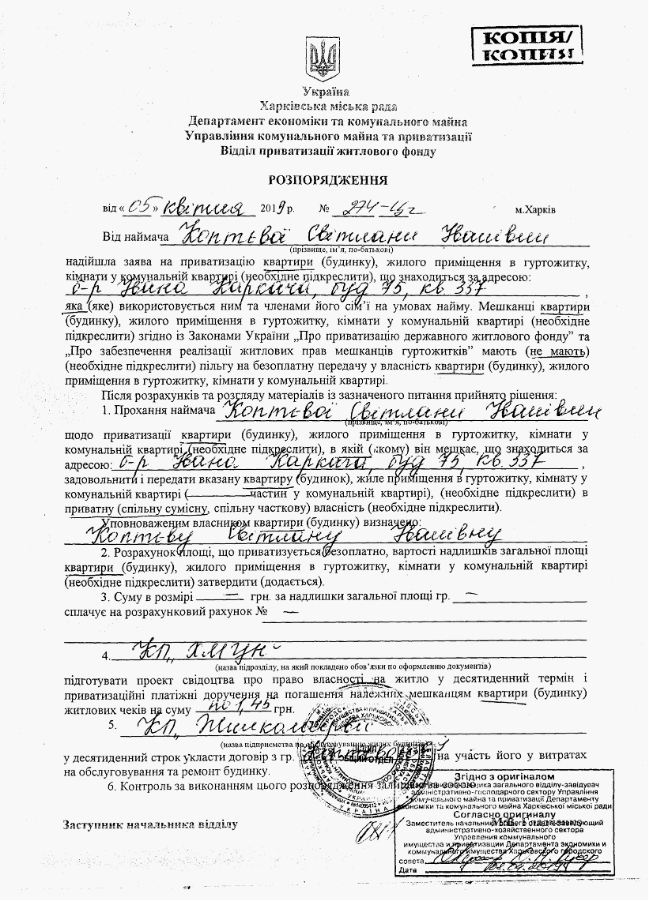 КОПІЯ/
КОПИЯ
Україна
Харківська міська рада
Департамент економіки та комунального майна
Управління комунального майна та приватизації
Відділ приватизації житлового фонду
РОЗПОРЯДЖЕННЯ
від «05» квітня 2019 р. № м.Харків
Від наймача Коптєвої Світлани
(прізвище, ім'я, по-батькові)
надійшла заява на приватизацію квартири (будинку), жилого приміщення в гуртожитку,
кімнати у комунальній квартирі (необхідне підкреслити), що знаходиться за адресою:
б-р Івана Каркача, буд 75, кв 337,
яка (яке) використовується ним та членами його сім'ї на умовах найму. Мешканці квартири
(будинку), жилого приміщення в гуртожитку, кімнати у комунальній квартирі (необхідне
підкреслити) згідно із Законами України „Про приватизацію державного житлового фонду" та
„Про забезпечення реалізації житлових прав мешканців гуртожитків" мають (не мають)
(необхідне підкреслити) пільгу на безоплатну передачу у власність квартири (будинку), жилого
приміщення в гуртожитку, кімнати у комунальній квартирі.
Після розрахунків та розгляду матеріалів із зазначеного питання прийнято рішення:
1. Прохання наймача Коптєвої Світлани
(прізвище, ім'я, по-батькові)
щодо приватизації квартири (будинку), жилого приміщення в гуртожитку, кімнати у
комунальній квартирі (необхідне підкреслити), в якій (якому) він мешкає, що знаходиться за
адресою: б-р Івана Каркача, буд 75, кв. 337,
задовольнити і передати вказану квартиру (будинок), жиле приміщення в гуртожитку, кімнату у
комунальній квартирі (— частин у комунальній квартирі), (необхідне підкреслити) в
приватну (спільну сумісну, спільну часткову) власність (необхідне підкреслити).
Уповноваженим власником квартири (будинку) визначено:
Коптєву Світлану
2. Розрахунок площі, що приватизується безоплатно, вартості надлишків загальної площі
квартири (будинку), жилого приміщення в гуртожитку, кімнати у комунальній квартирі
(необхідне підкреслити) затвердити (додається).
3. Суму в розмірі — грн. за надлишки загальної площі гр. —
сплачує на розрахунковий рахунок № —
4. КП „ХМУН"
(назва підрозділу, на який покладено обов'язки по оформленню документів)
підготувати проект свідоцтва про право власності на житло у десятиденний термін і
приватизаційні платіжні доручення на погашення належних мешканцям квартири (будинку)
житлових чеків на суму по 1,45 грн.
5. КП „Жилкомсервіс"
(назва підприємства по обслуговуванню жилих будинків)
у десятиденний строк укласти договір з гр. на участь його у витратах
на обслуговування та ремонт будинку.
6. Контроль за виконанням цього розпорядження залишаю за собою
Заступник начальника відділу
Згідно з оригіналом
начальника загального відділу-завідувач
адміністративно-господарчого сектору Управління
комунального майна та приватизації Департаменту
економіки та комунального майна Харківської міської ради
Согласно оригиналу
Заместитель начальника общего отдела-заведующий
административно-хозяйственного сектора
Управления коммунального
имущества и приватизации Департамента экономики и
коммунального имущества Харьковского городского
совета
Дата